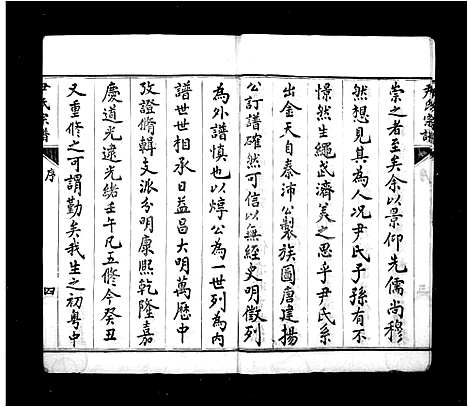 尹氏宗譜
崇之者至矣余以景仰先儒尚穆
然想見其為人况尹氏子孫有不
憬然生繩武濟美之思乎尹氏系
出金天自秦沛公製族圖唐建揚
公訂譜確然可信以無經史明徵列
為外譜慎也以焞公為一世列為内
譜世世相承日益昌大明萬歷中
攷證脩輯支派分明康熙乾隆嘉
慶道光逮光緒壬午凡五修今癸丑
又重修之可謂勤矣我生之初粤中
尹氏宗譜
序
四